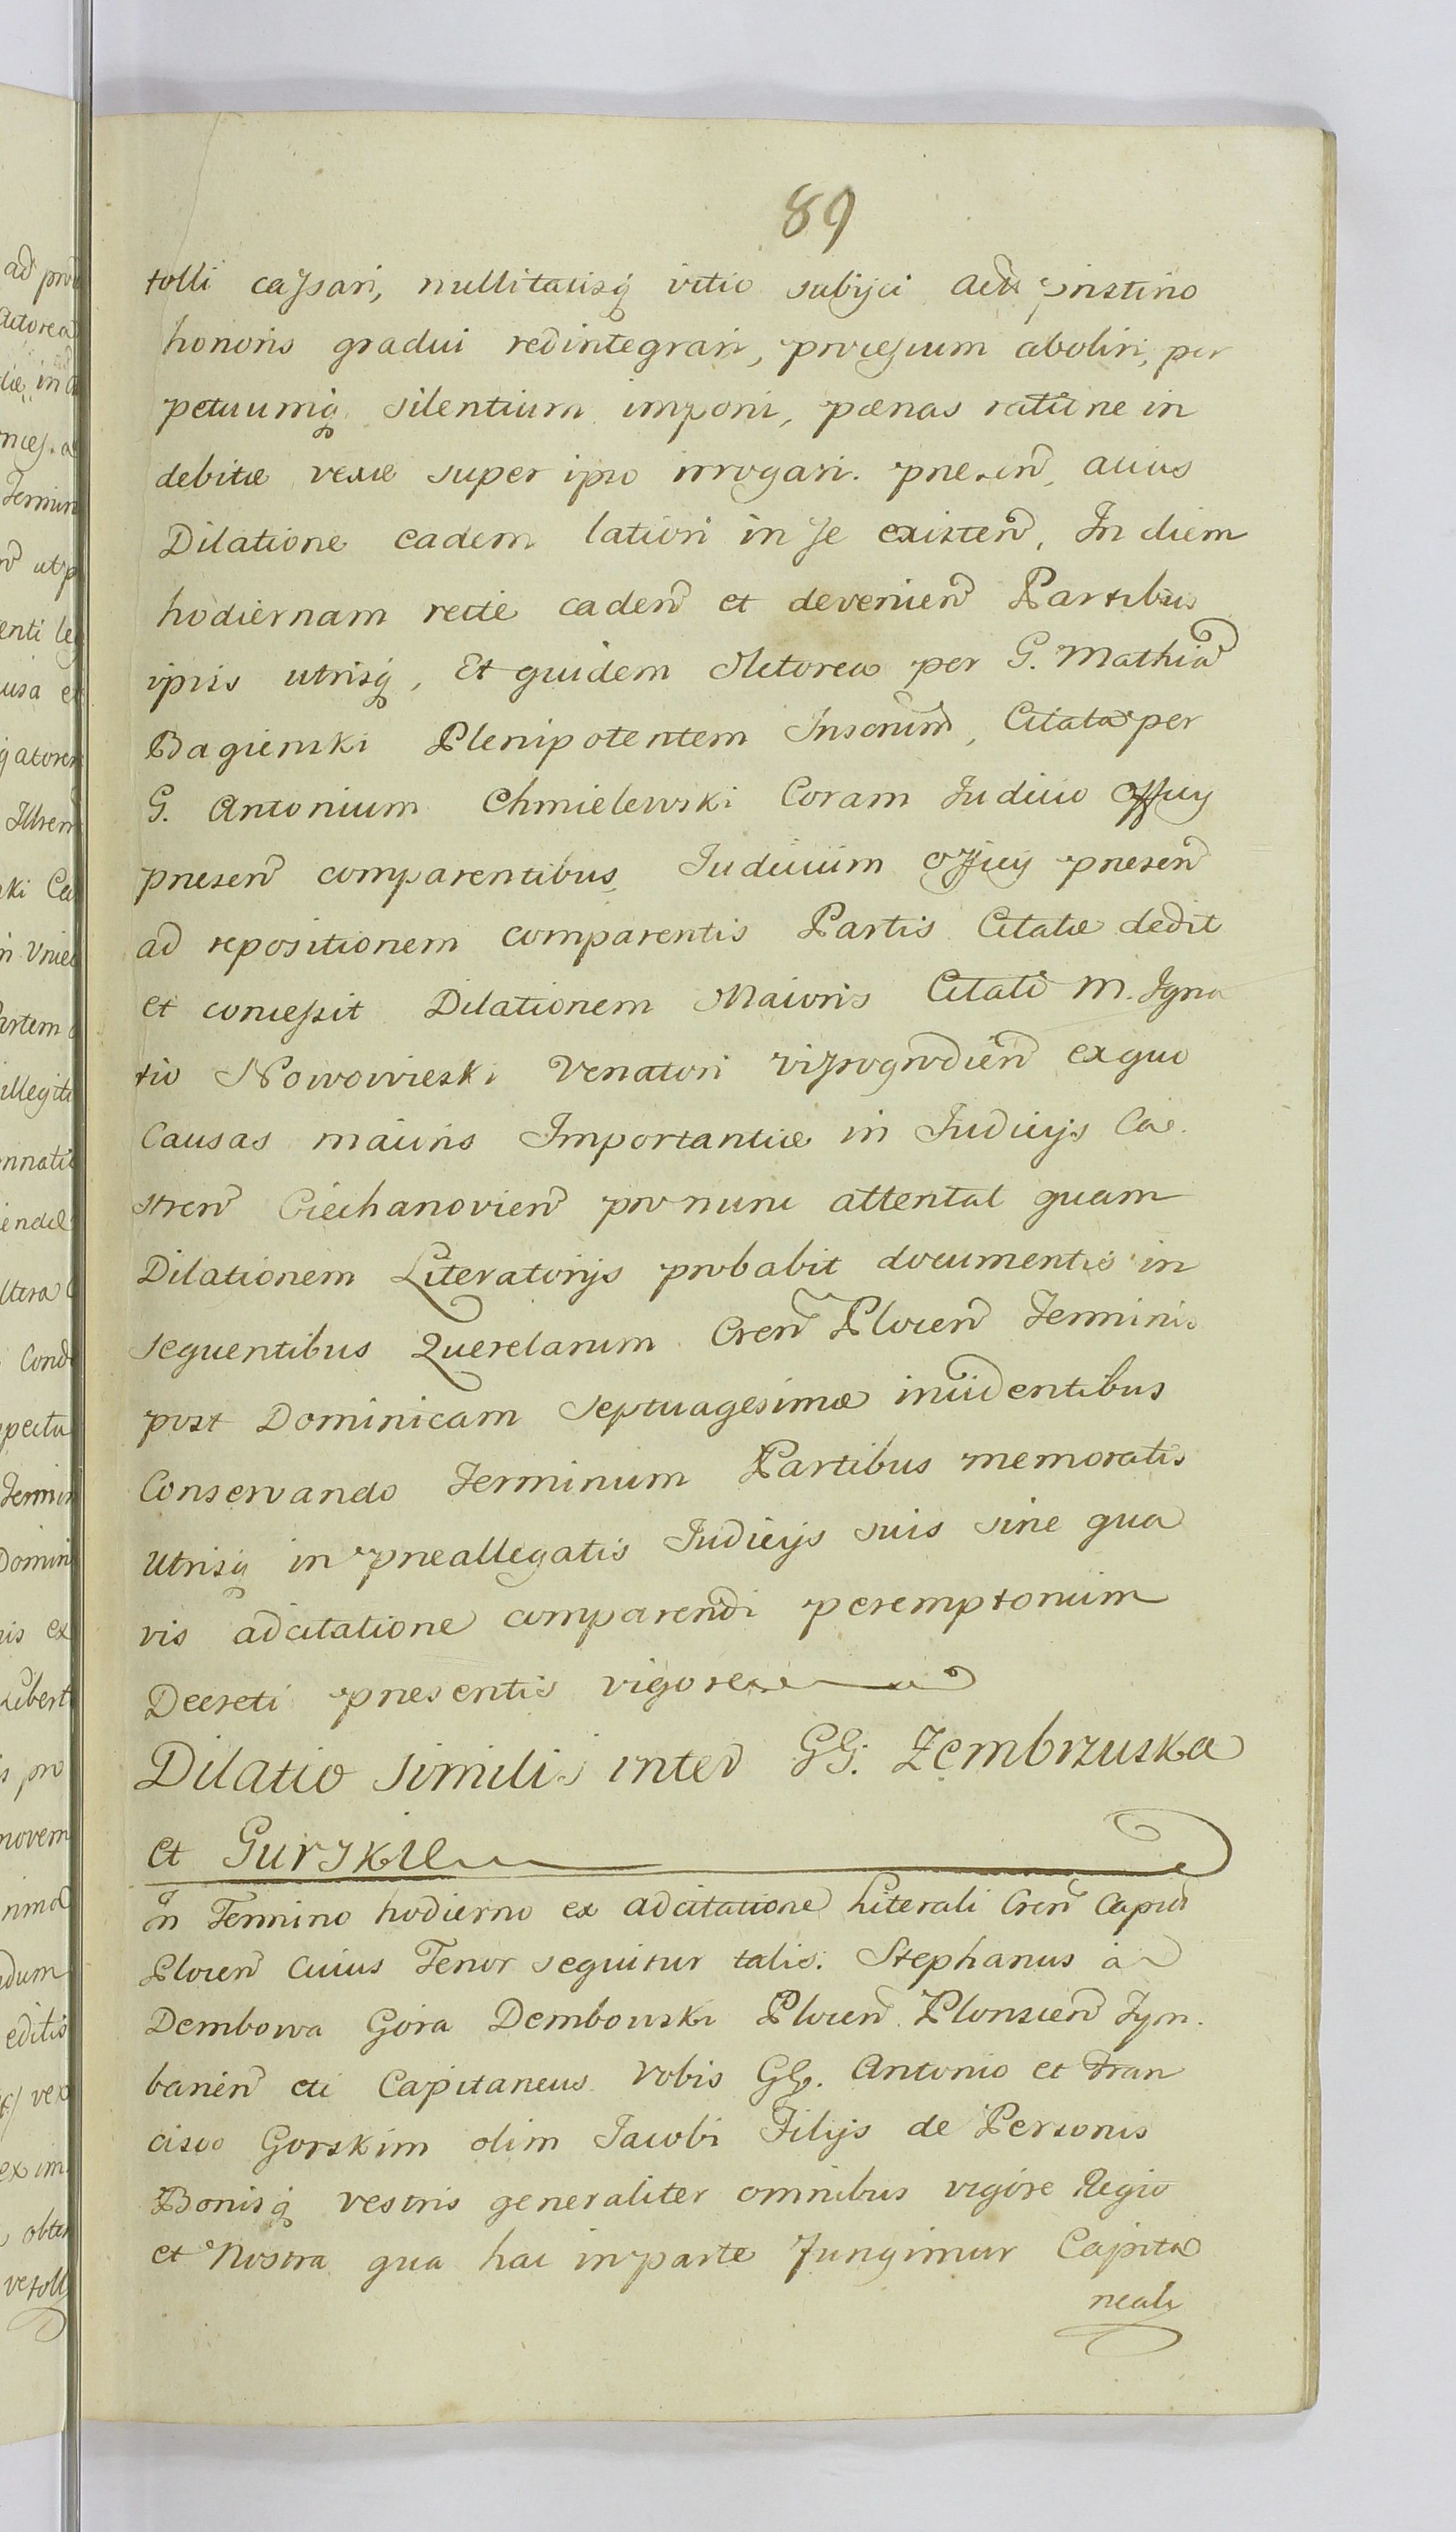 89
tolli cassari, nullitatisq vitio subijci pristino
honoris gradui redintegrari, processum aboliri, per
petuumq silentium imponi, pœnas ratione in
debitæ vexæ super ipso irrogari. præsen, cuius
Dilatione eadem latiori in se existen, In diem
hodiernam recte caden et devenien Partibus
ipsis utrisq, Et quidem Actorea per G. Mathia
Bagienski Plenipotentem Citata per
G. Antonium Chmielewski Coram Iudicio Officy
præsen comparentibus, Iudicium officy præsen
ad repositionem comparentis Partis Citatæ dedit
et concessit Dilationem Maioris Citato M. Igna
tio Nowowieski Venatori Wissogrodien ex quo
Causas maioris Importantiæ in Iudicijs Ca
stren Ciechanovien pro nunc attentat quam
Dilationem Literatorijs probabit documentis in
sequentibus Querelarum Cren Plocen Terminis
post Dominicam Septuagesimæ incidentibus
Conservando Terminum Partibus memoratis
Utrisq in præallegatis Iudicijs suis sine qua
vis adcitatione comparendi peremptorium
Decreti præsentis vigore
Dilatio Similis inter GG. Zembrzuska
et Gurskie
In Termino hodierno ex adcitatione Literali Cren Capit
Plocen Cuius Tenor sequitur talis. Stephanus a
Dembowa Gora Dembowski Plocen Plonscen Tym
banen etc Capitaneus Vobis GG. Antonio et Fran
cisco Gorskim olim Iacobi Filijs de Personis
Bonisq vestris generaliter omnibus vigore Regio
et Nostra qua hac in parte fungimur Capita
neali